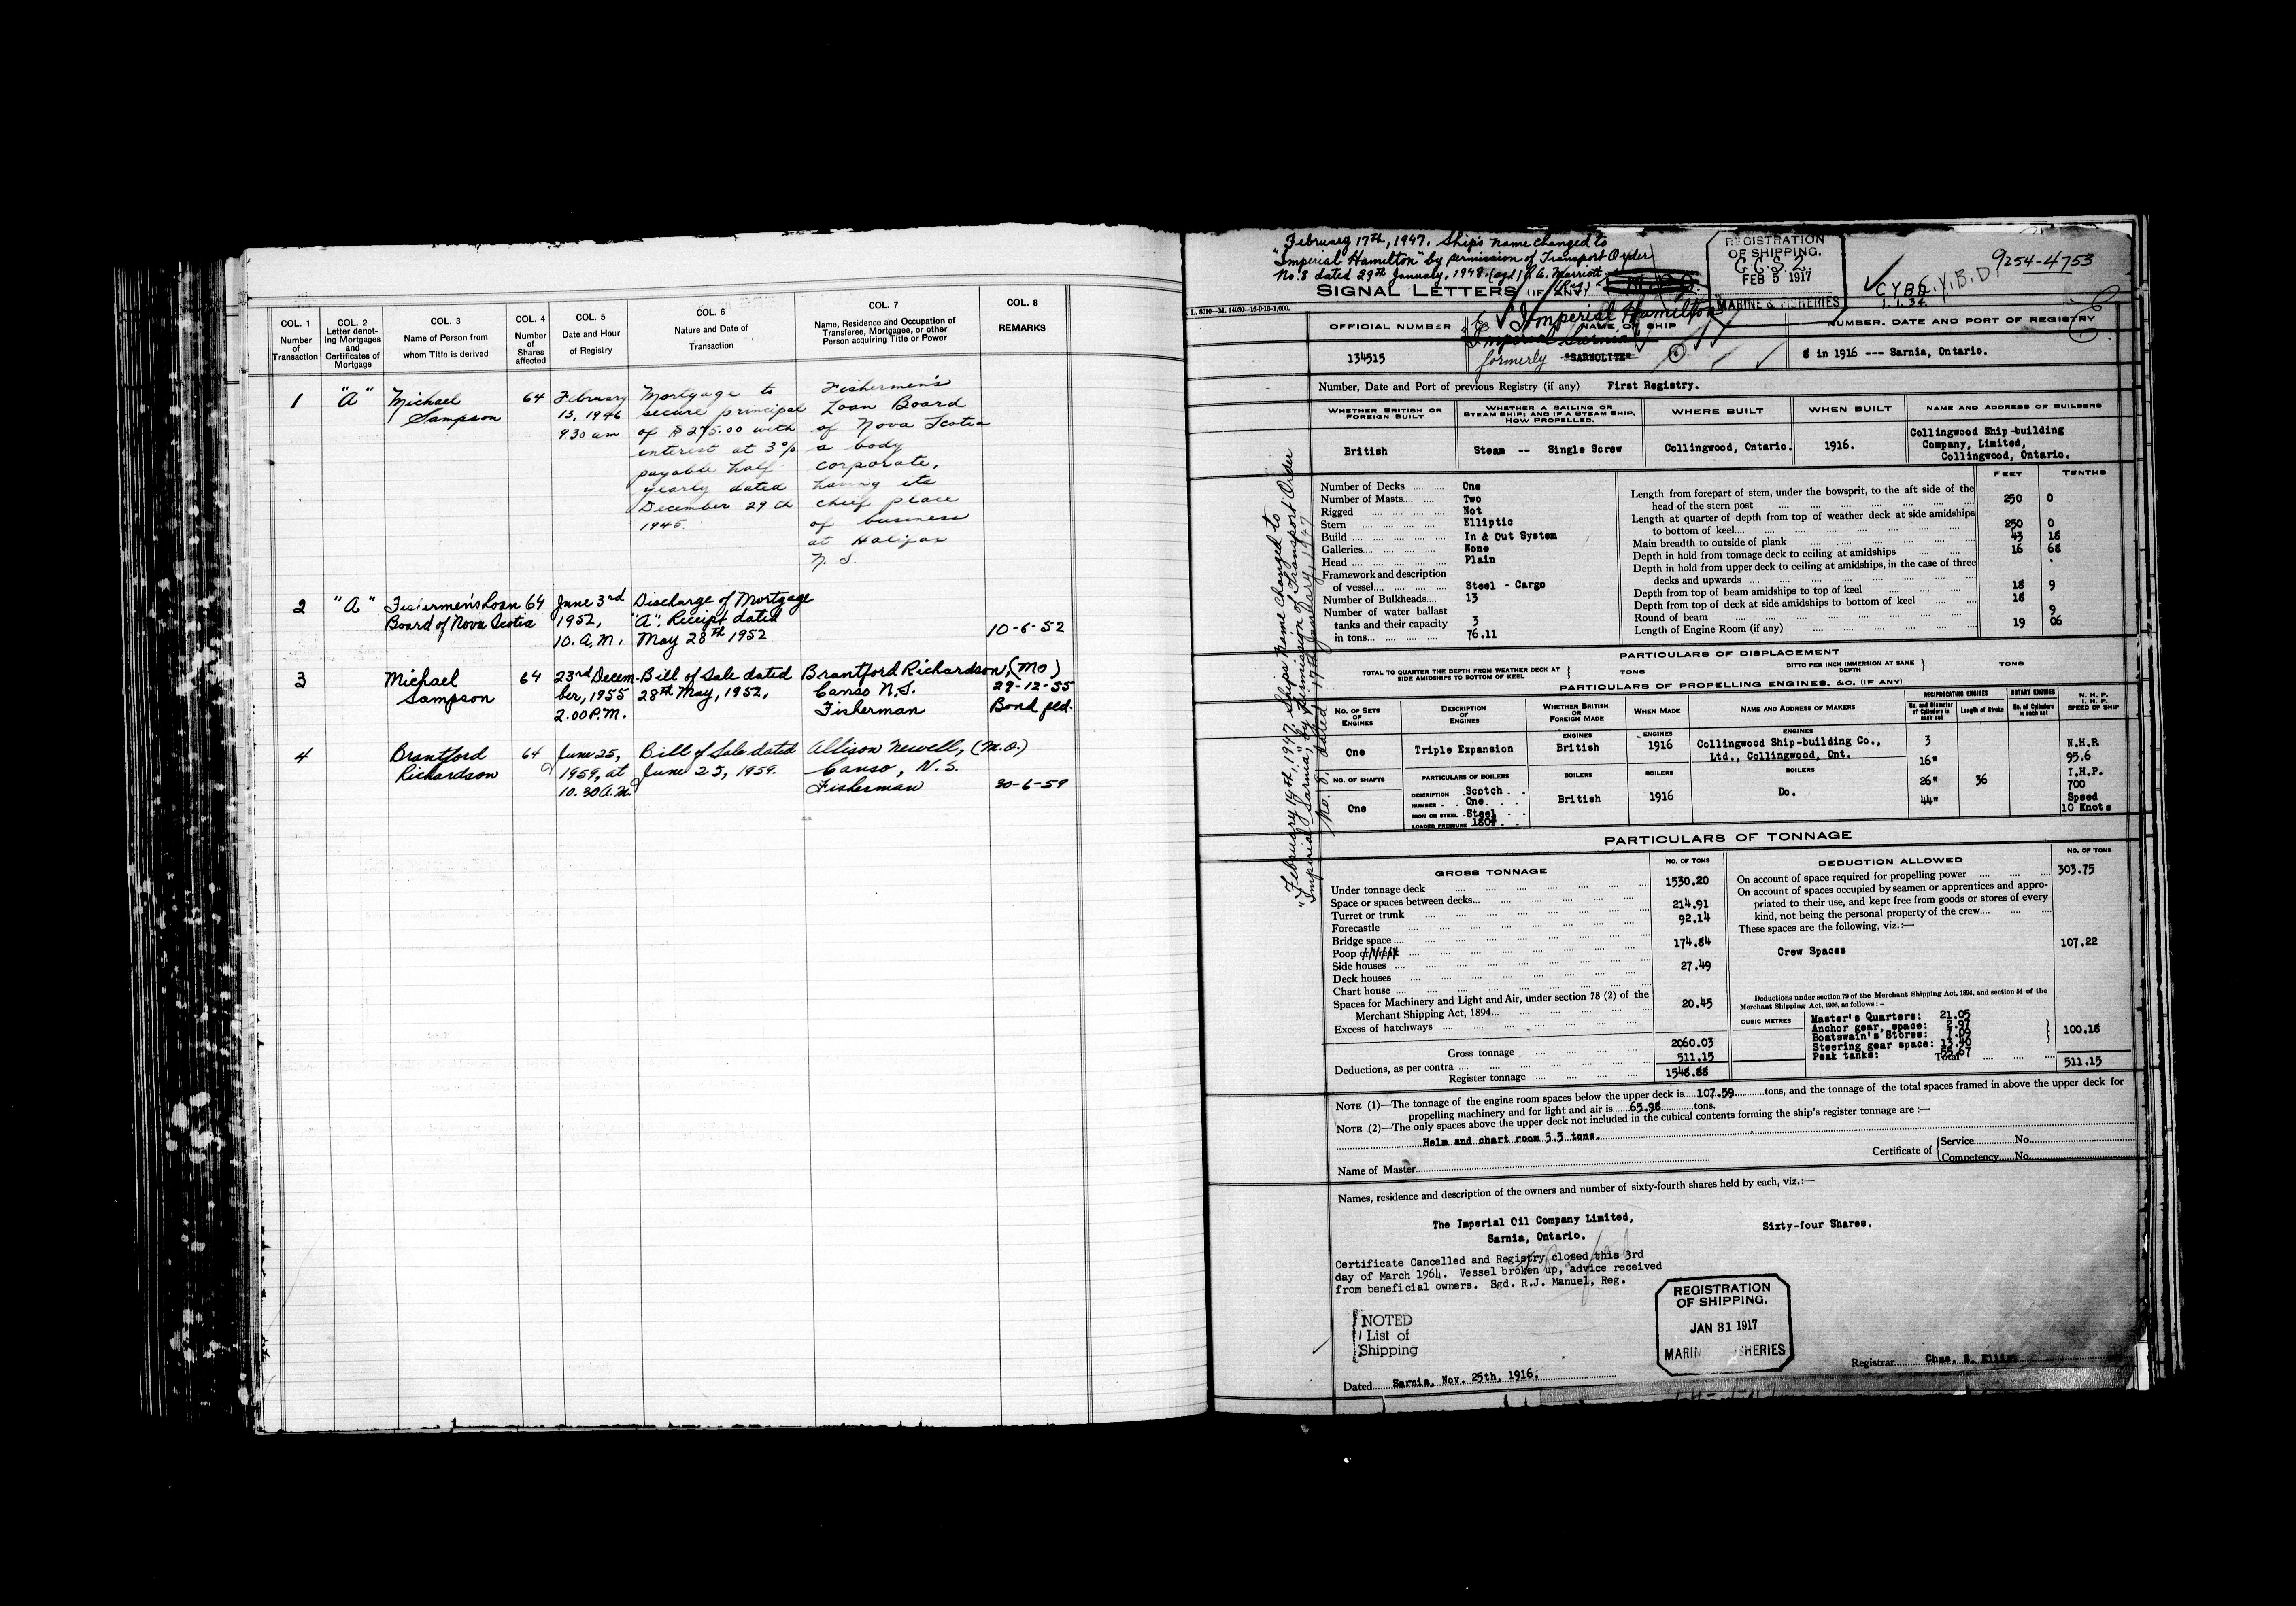 COL. 1 Number of Transaction
COL. 2 Letter denoting Mortgages and Certificates of Mortgage
COL. 3 Name of Person from whom Title is derived
COL. 4 Number of Shares affected
COL. 5 Date and Hour of Registry
COL. 6 Nature and Date of Transaction
COL. 7 Name, Residence and Occupation of Transferee, Mortgagee, or other Person acquiring Title or Power
COL. 8 REMARKS
1 "A" Michael Sampson 64 February 13, 1946 9.30 am
Mortgage to
secure principal
of $275.00 with
interest at 3%
payable half
yearly dated
December 29th
1945.
Fishermen's
Loan Board
of Nova Scotia
a body
corporate,
having its
chief place
of business
at Halifax
N. S.
2 "A" Fishermen's Loan Board of Nova Scotia 64 June 3rd 1952, 10. A.M.
Discharge of Mortgage
"A". Receipt dated
May 28th 1952
10-6-52
3 Michael Sampson 64 23rd December, 1955 2.00 P.M.
Bill of Sale dated
28th May, 1952,
Brantford Richardson, (MO)
Canso N.S.
Fisherman
29-12-55
Bond fld.
4 Brantford Richardson 64 June 25, 1959, at 10.30 A.M.
Bill of Sale dated
June 25, 1959.
Allison Newell, (M.O.)
Canso, N.S.
Fisherman
30-6-59
February 17th, 1947. Ship's name changed to
"Imperial Hamilton" by permission of Transport Order
No. 8 dated 29th January, 1948. (sgd)
SIGNAL LETTERS (IF ANY)
REGISTRATION
OF SHIPPING.
FEB 5 1917
MARINE & FISHERIES
9254-4753
CYBD
1.1.34
L. 8010—M. 14030—16-9-16-1,000.
OFFICIAL NUMBER
NAME OF SHIP
NUMBER, DATE AND PORT OF REGISTRY
134515
Imperial Hamilton
Imperial Sarnia
formerly "SARNOLITE"
8 in 1916 --- Sarnia, Ontario.
Number, Date and Port of previous Registry (if any) First Registry.
WHETHER BRITISH OR FOREIGN BUILT
WHETHER A SAILING OR STEAM SHIP; AND IF A STEAM SHIP, HOW PROPELLED.
WHERE BUILT
WHEN BUILT
NAME AND ADDRESS OF BUILDERS
British
Steam -- Single Screw
Collingwood, Ontario.
1916.
Collingwood Ship-building
Company, Limited,
Collingwood, Ontario.
Number of Decks One
Number of Masts Two
Rigged Not
Stern Elliptic
Build In & Out System
Galleries None
Head Plain
Framework and description
of vessel Steel - Cargo
Number of Bulkheads 13
Number of water ballast
tanks and their capacity 3
in tons 76.11
FEET TENTHS
Length from forepart of stem, under the bowsprit, to the aft side of the
head of the stern post 250 0
Length at quarter of depth from top of weather deck at side amidships
to bottom of keel 250 0
Main breadth to outside of plank 43 18
Depth in hold from tonnage deck to ceiling at amidships 16 68
Depth in hold from upper deck to ceiling at amidships, in the case of three
decks and upwards
Depth from top of beam amidships to top of keel 18 9
Depth from top of deck at side amidships to bottom of keel 18
Round of beam 9
Length of Engine Room (if any) 19 06
PARTICULARS OF DISPLACEMENT
TOTAL TO QUARTER THE DEPTH FROM WEATHER DECK AT SIDE AMIDSHIPS TO BOTTOM OF KEEL TONS
DITTO PER INCH IMMERSION AT SAME DEPTH TONS
PARTICULARS OF PROPELLING ENGINES, &C. (IF ANY)
NO. OF SETS OF ENGINES
DESCRIPTION OF ENGINES
WHETHER BRITISH OR FOREIGN MADE
WHEN MADE
NAME AND ADDRESS OF MAKERS
RECIPROCATING ENGINES
No. and Diameter of Cylinders in each set
Length of Stroke
ROTARY ENGINES
No. of Cylinders in each set
N. H. P.
I. H. P.
SPEED OF SHIP
One
Triple Expansion
ENGINES
British
ENGINES
1916
ENGINES
Collingwood Ship-building Co.,
Ltd., Collingwood, Ont.
3
16"
26"
44"
36
N.H.P.
95.6
I.H.P.
700
Speed
10 Knots
NO. OF SHAFTS
One
PARTICULARS OF BOILERS
DESCRIPTION Scotch
NUMBER One
IRON OR STEEL Steel
LOADED PRESSURE 180#
BOILERS
British
BOILERS
1916
BOILERS
Do.
PARTICULARS OF TONNAGE
GROSS TONNAGE
NO. OF TONS
Under tonnage deck 1530.20
Space or spaces between decks
Turret or trunk 214.91
Forecastle 92.14
Bridge space
Poop 174.84
Side houses
Deck houses 27.49
Chart house
Spaces for Machinery and Light and Air, under section 78 (2) of the
Merchant Shipping Act, 1894 20.45
Excess of hatchways
Gross tonnage 2060.03
Deductions, as per contra 511.15
Register tonnage 1548.88
DEDUCTION ALLOWED
NO. OF TONS
On account of space required for propelling power 303.75
On account of spaces occupied by seamen or apprentices and appro-
priated to their use, and kept free from goods or stores of every
kind, not being the personal property of the crew
These spaces are the following, viz.:—
Crew Spaces 107.22
Deductions under section 79 of the Merchant Shipping Act, 1894, and section 54 of the
Merchant Shipping Act, 1906, as follows:—
CUBIC METRES
Master's Quarters: 21.05
Anchor gear, space: 2.97
Boatswain's Stores: 7.09
Steering gear space: 13.40
Peak tanks: 55.67
100.18
Total 511.15
NOTE (1)—The tonnage of the engine room spaces below the upper deck is 107.59 tons, and the tonnage of the total spaces framed in above the upper deck for
propelling machinery and for light and air is 65.98 tons.
NOTE (2)—The only spaces above the upper deck not included in the cubical contents forming the ship's register tonnage are :—
Helm and chart room 5.5 tons.
Name of Master
Certificate of
Service No.
Competency No.
Names, residence and description of the owners and number of sixty-fourth shares held by each, viz.:—
The Imperial Oil Company Limited,
Sarnia, Ontario.
Sixty-four Shares.
Certificate Cancelled and Registry closed this 3rd
day of March 1964. Vessel broken up, advice received
from beneficial owners. Sgd. R.J. Manuel, Reg.
NOTED
List of
Shipping
REGISTRATION
OF SHIPPING.
JAN 31 1917
Dated Sarnia, Nov. 25th, 1916.
Registrar Chas. S.
"February 14th, 1947. Ship's name changed to
"Imperial Sarnia," by permission of Transport Order
No. 8, dated 17th January, 1947